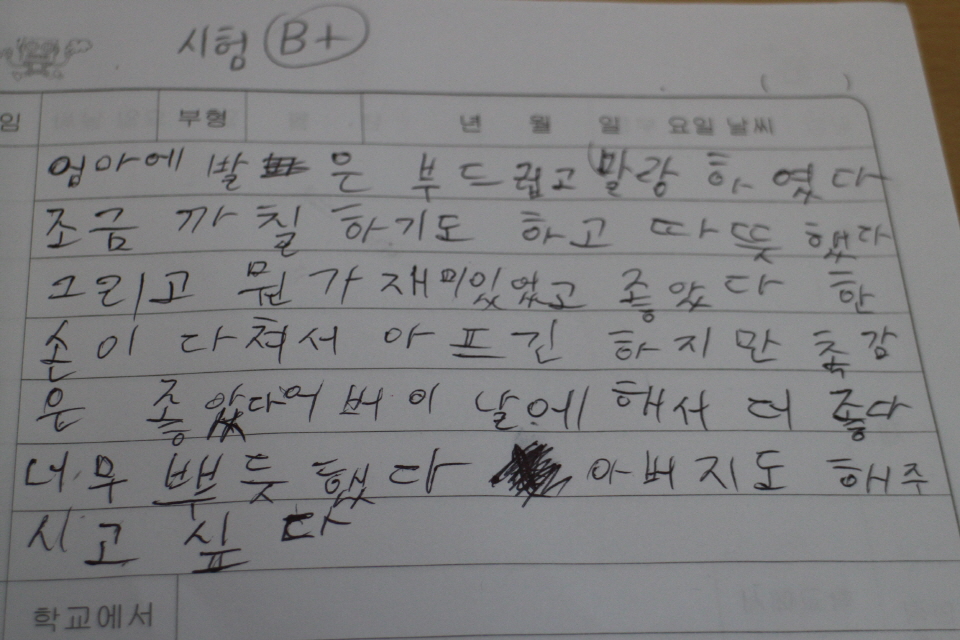 시험 B+
( )
임 부형 년 월 일 요일 날씨
엄아에 발 은 부드럽고 말랑 하 였다
조금 까칠 하기도 하고 따뜻 했다
그리고 뭔가 재미있었고 좋았다 한
손이 다쳐서 아프긴 하지만 촉감
은 좋았다어버이날에 해서 더 좋다
너무 뿌듯했다 아버지도 해주
시고 싶다
학교에서